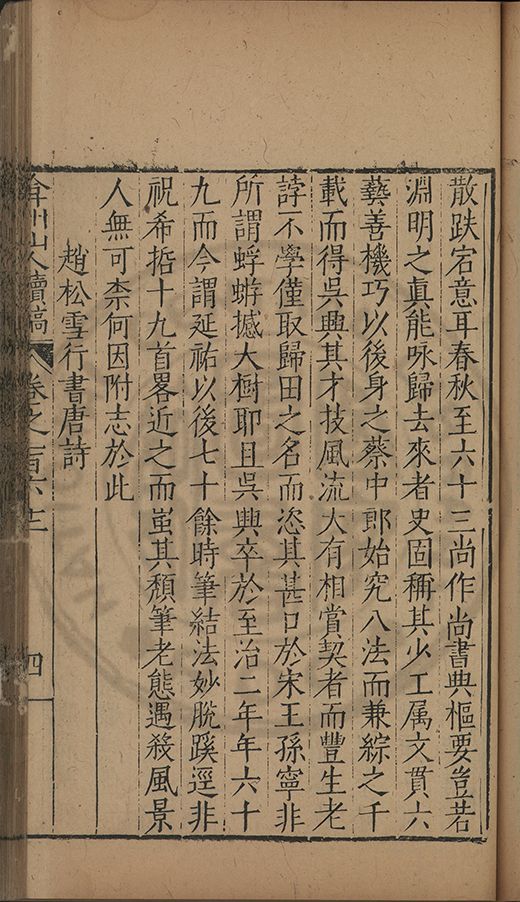 散跌宕意耳春秋至六十三尚作尚書典樞要豈若
淵明之真能咏歸去來者史固稱其少工属文貫六
藝善機巧以後身之蔡中郎始究八法而兼綜之千
載而得吳興其才技風流大有相賞契者而豐生老
誖不學僅取歸田之名而恣其甚口於宋王孫寧非
所謂蜉蝣撼大樹耶且吳興卒於至治二年年六十
九而今謂延祐以後七十餘時筆結法妙脫蹊逕非
祝希哲十九首畧近之而虽其頹筆老態遇殺風景
人無可柰何因附志於此
趙松雪行書唐詩
弇州山人續稿 卷之一百六十二 四